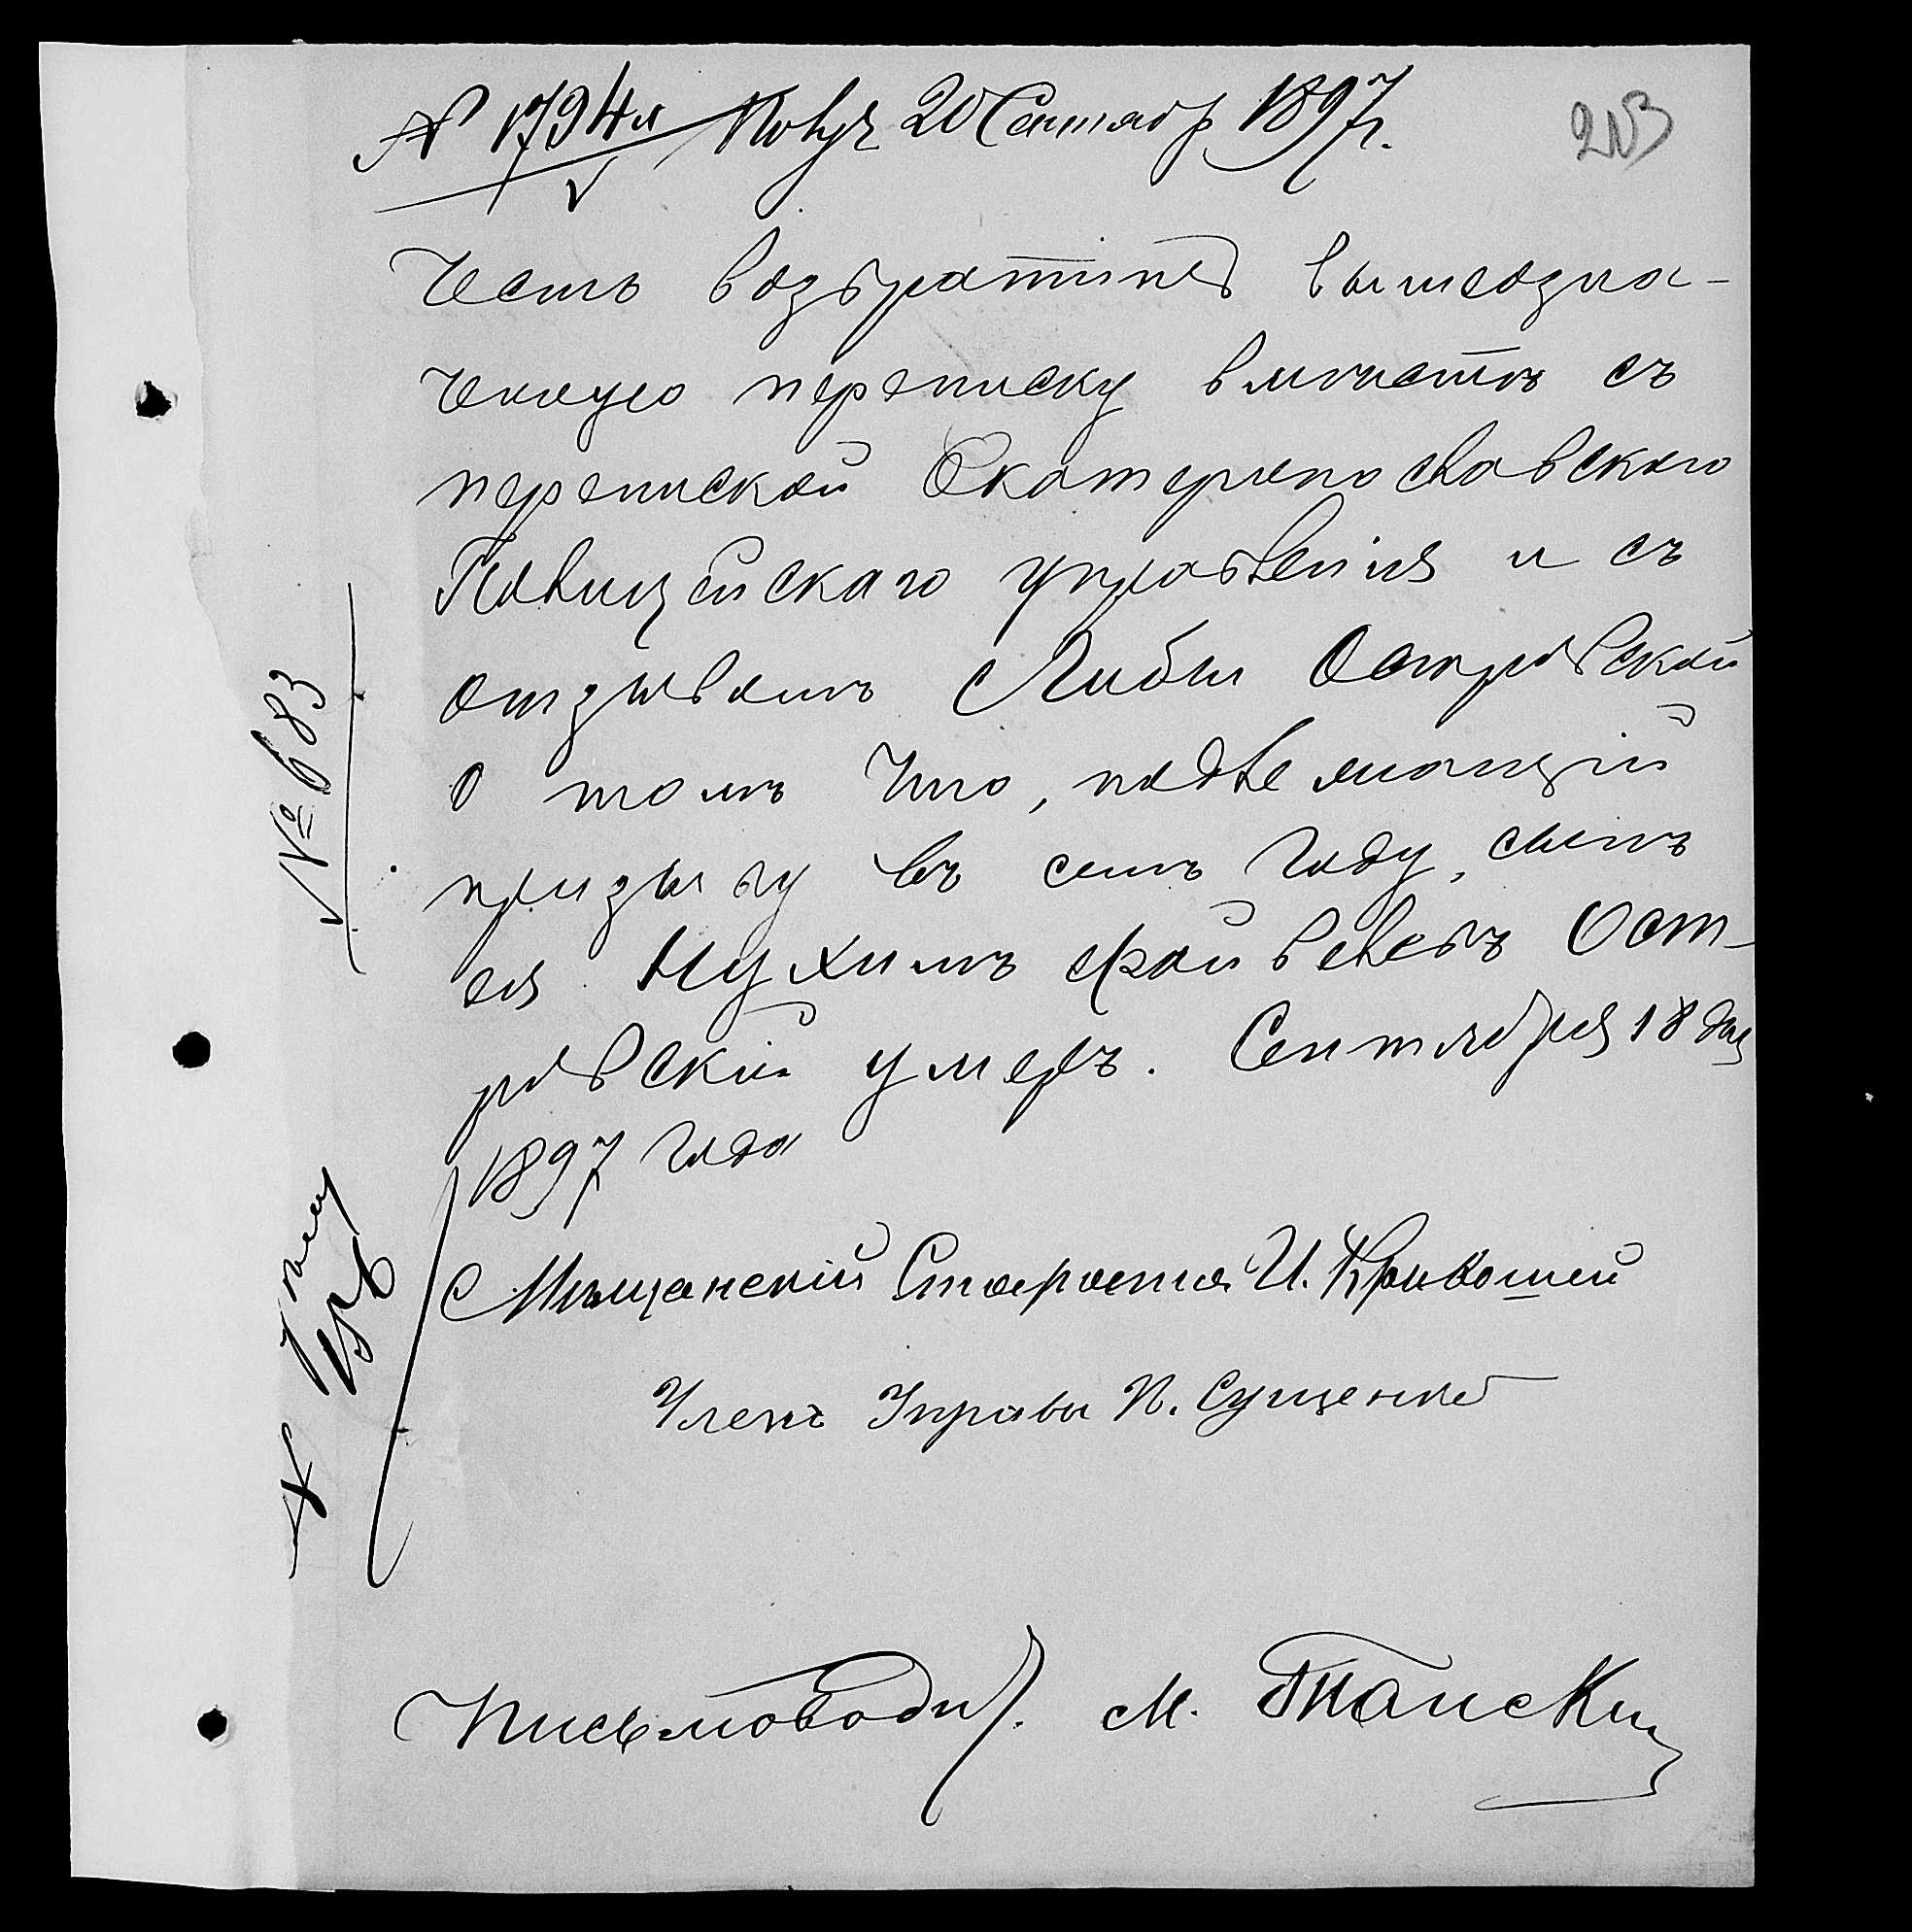 № 1794 Получ 20 Сентябр 1897 г.
203
Честь возвратить вышеозна-
ченную переписку вместе съ
перепиской Екатеринославскаго
Полицейскаго управленія и съ
отзывомъ Либы Островской
о томъ что, подлежащій
призыву въ семъ году, сынъ
ея Нухимъ Файвелевъ Ост-
ровскій умеръ. Сентября 18 дня
1897 года
Мѣщанскій Староста И. Кривошей
Членъ Управы П. Сущенко
Письмоводит. М. Танскій
№ 683